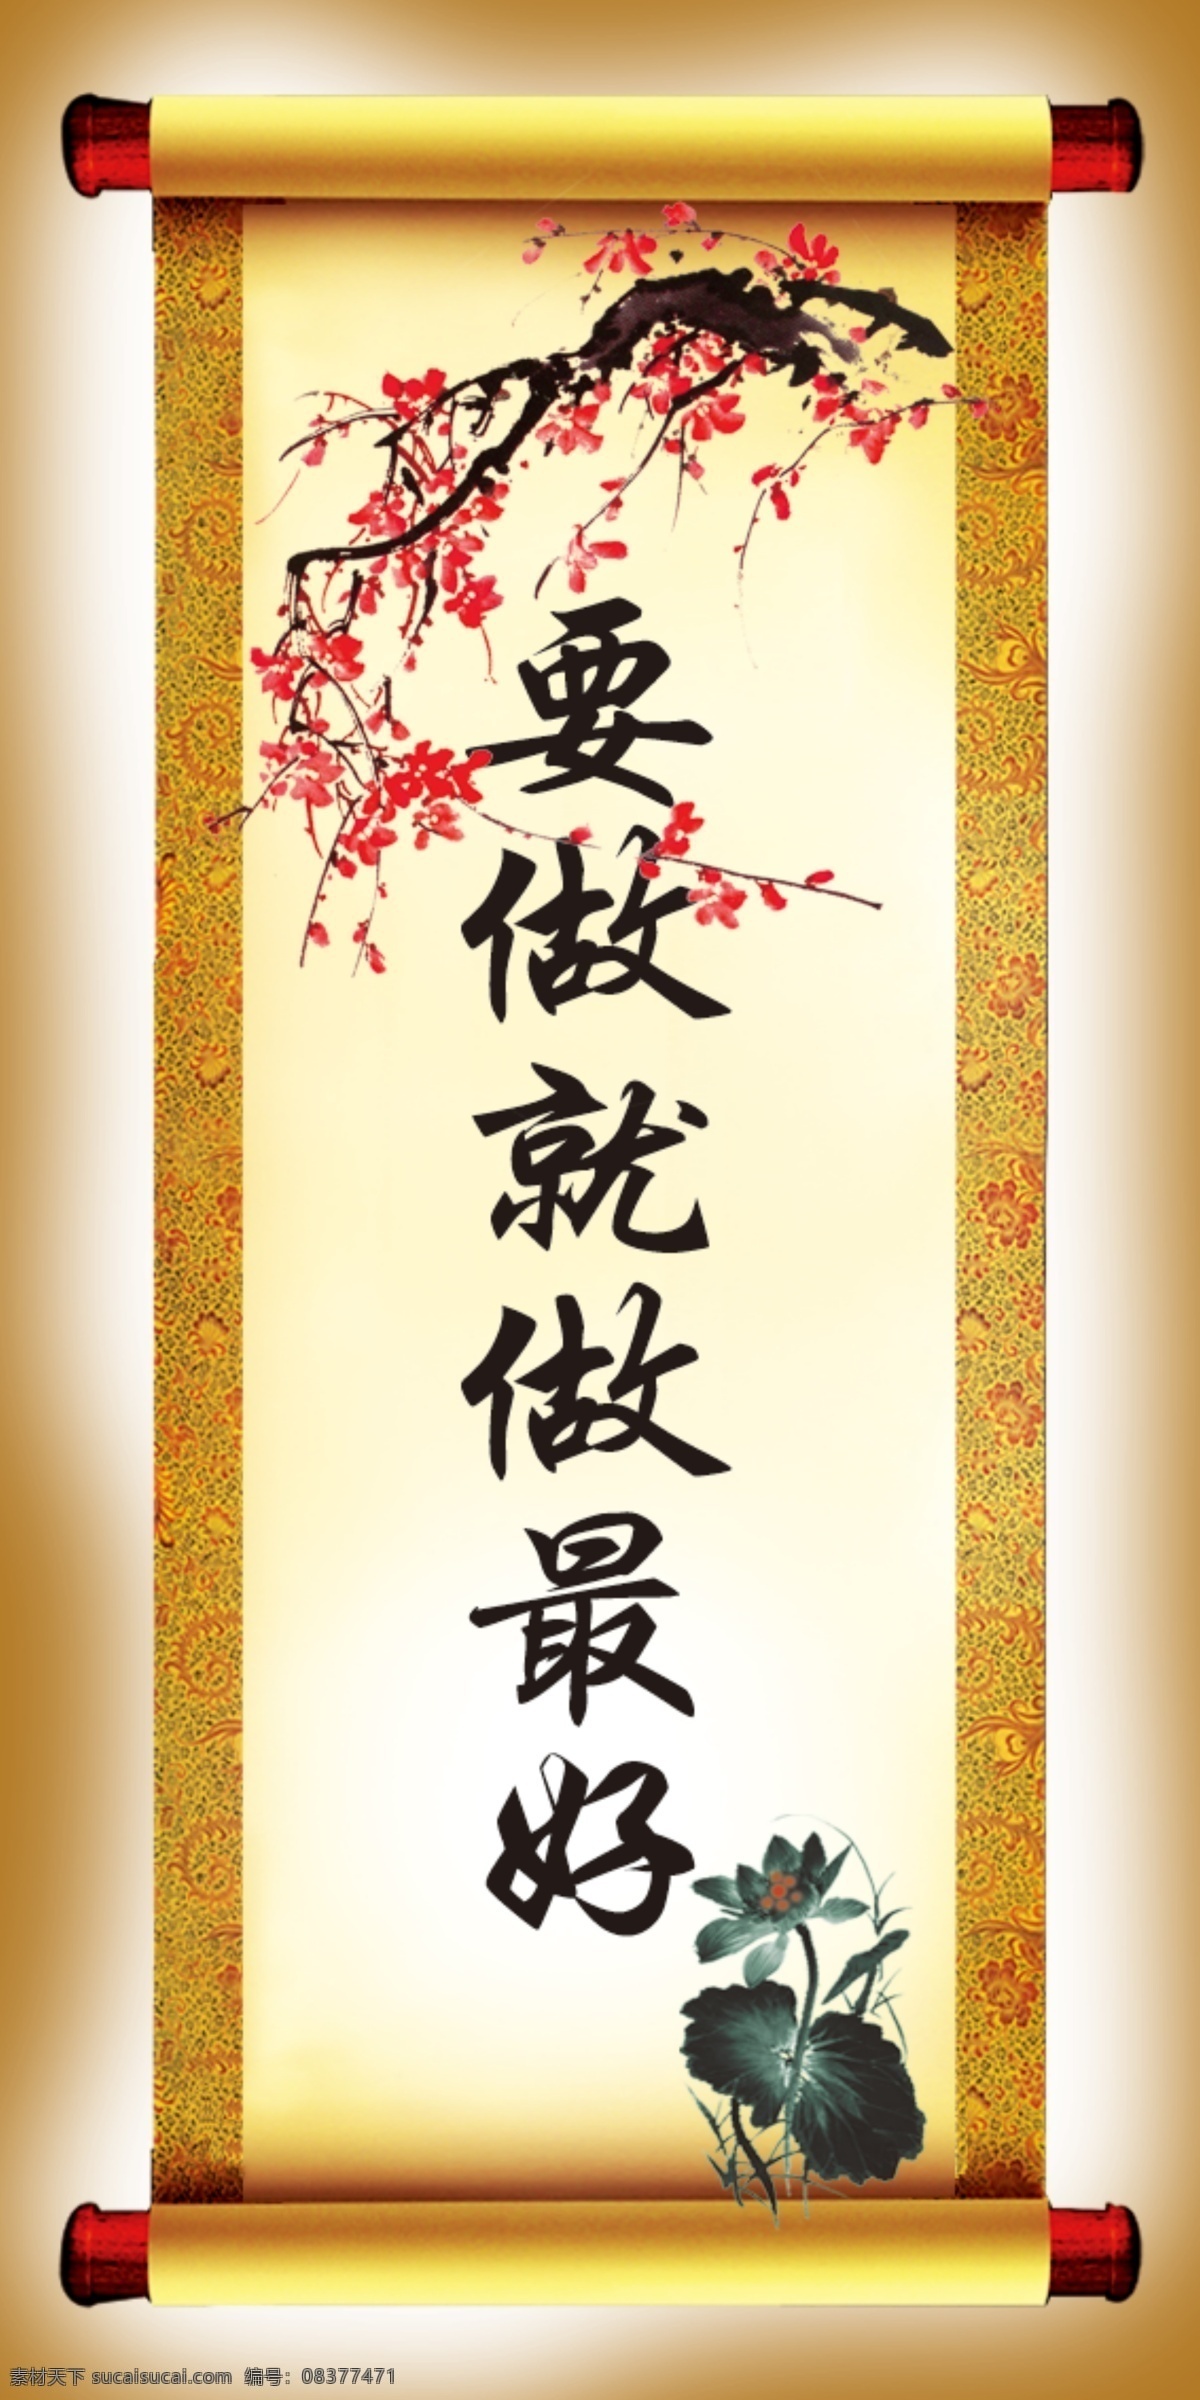 要做就做最好
素材天下 sucaisucai.com 编号：08377471